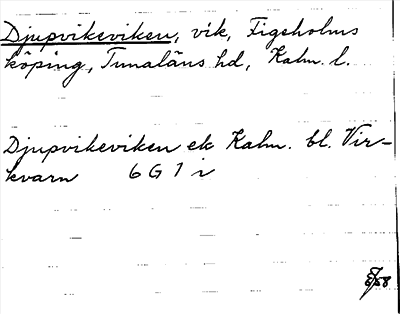 Djupvikeviken, vik, Figeholms
köping, Tunaläns hd, Kalm. l.
Djupvikeviken ek Kalm. bl. Vir-
kvarn 6 G 1 i